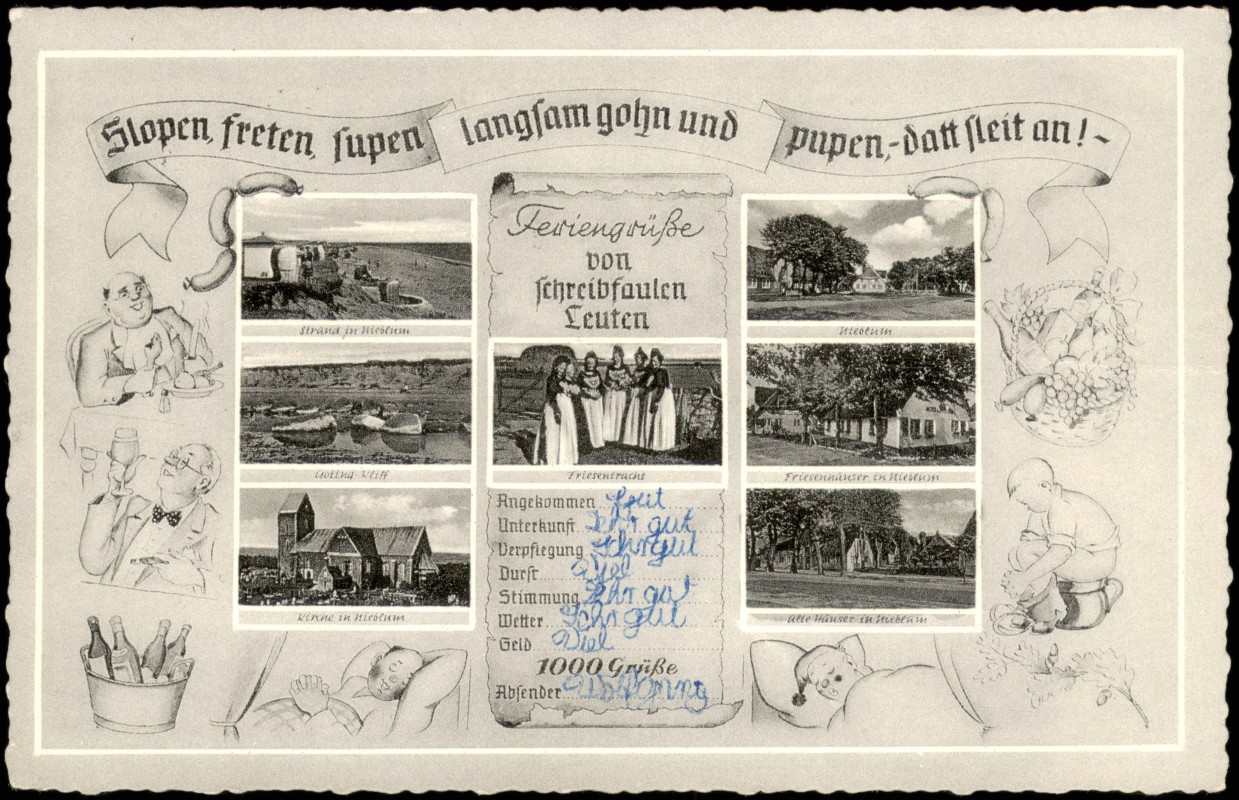 Slopen, freten, supen langsam gohn und pupen,-datt sleit an!-
Feriengrüße
von
schreibfaulen
Leuten
Strand in Nieblum
Nieblum
Goting Kliff
Friesentracht
Friesenhäuser in Nieblum
Kirche in Nieblum
Alte Häuser in Nieblum
Angekommen
Unterkunft Sehr gut
Verpflegung Sehr gut
Durst Viel
Stimmung Sehr gut
Wetter Sehr gut
Geld Viel
1000 Grüße
Absender